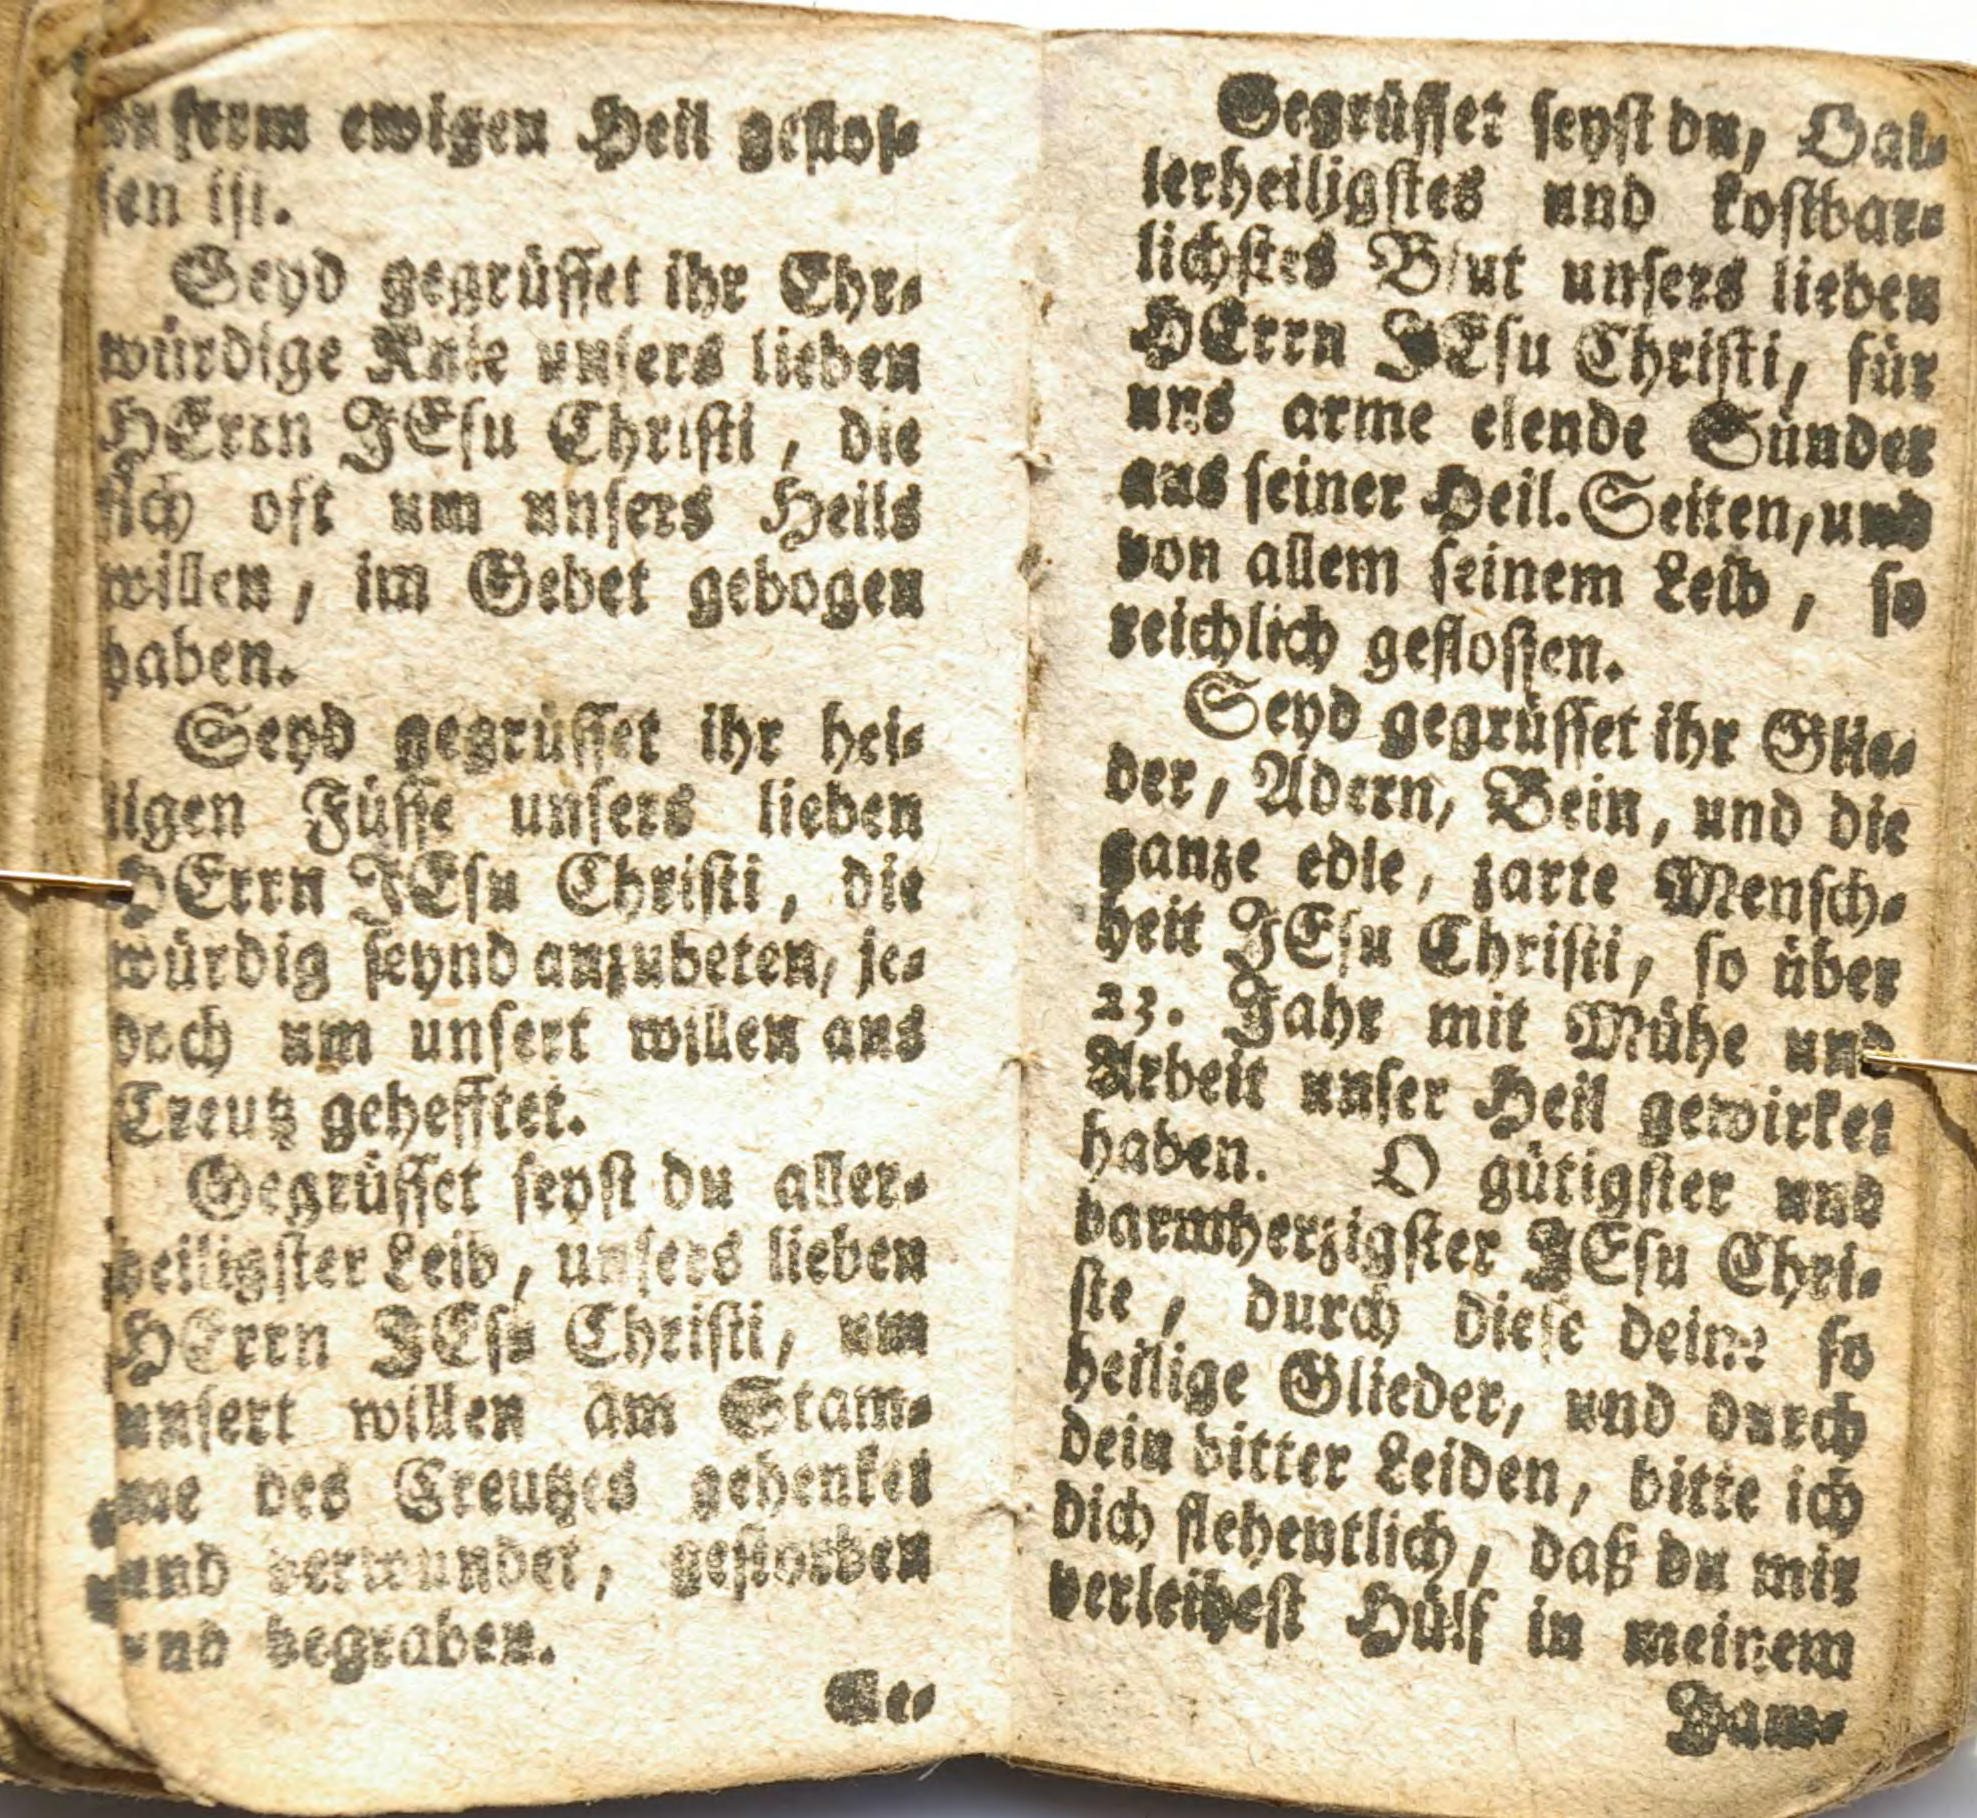 unserm ewigen Heil geflos-
sen ist.
Seyd gegrüsset ihr Ehr-
würdige Knie unsers lieben
HErrn JEsu Christi, die
sich oft um unsers Heils
willen, im Gebet gebogen
haben.
Seyd gegrüsset ihr hei-
ligen Füsse unsers lieben
HErrn JEsu Christi, die
würdig seynd anzubeten, je-
doch um unsert willen ans
Creutz gehefftet.
Gegrüsset seyst du aller-
heiligster Leib, unsers lieben
HErrn JEsu Christi, um
unsert willen am Stam-
me des Creutzes gehenket
und verwundet, gestorben
und begraben.
Ge-
Gegrüsset seyst du, O al-
lerheiligstes und kostbar-
lichstes Blut unsers lieben
HErrn JEsu Christi, für
uns arme elende Sünder
aus seiner Heil. Seiten, und
von allem seinem Leib, so
reichlich geflossen.
Seyd gegrüsset ihr Glie-
der, Adern, Bein, und die
ganze edle, zarte Mensch-
heit JEsu Christi, so über
23. Jahr mit Mühe und
Arbeit unser Heil gewirket
haben. O gütigster und
barmherzigster JEsu Chri-
ste, durch diese deine so
heilige Glieder, und durch
dein bitter Leiden, bitte ich
dich flehentlich, daß du mir
verleihest Hülf in meinem